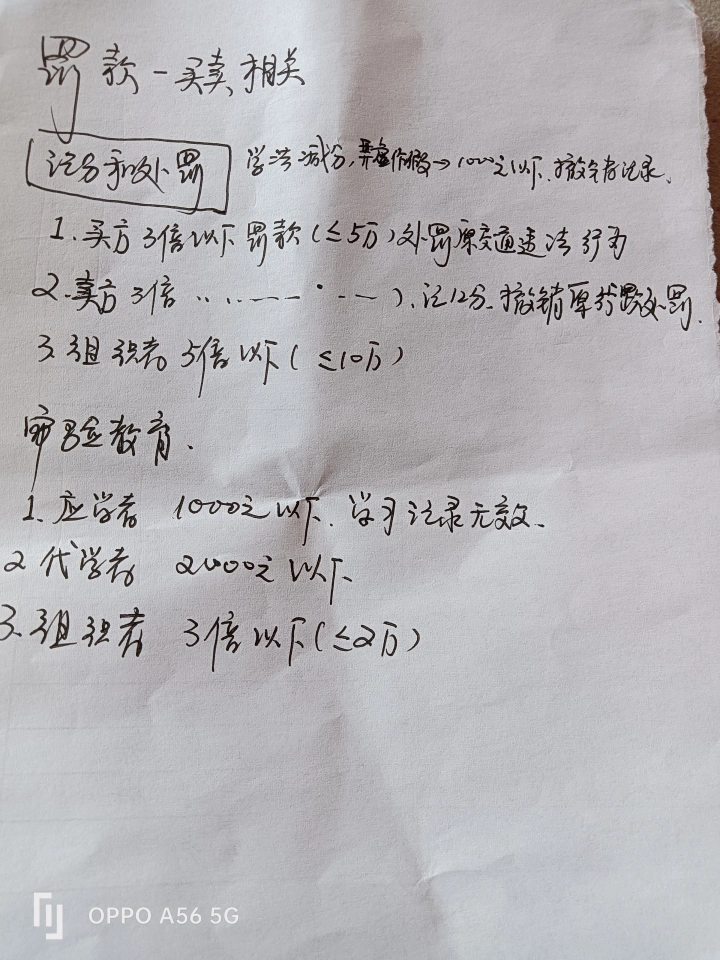 罚款-买卖相关
记分和处罚 学法减分,弄虚作假→1000元以下.撤销记录.
1.买方3倍以下罚款(≤5万)处罚原交通违法行为
2.卖方3倍 ‥‥—–—·–— ).记12分.撤销原 处罚.
3.组织者5倍以下(≤10万)
审验教育.
1.应学者 1000元以下.学习记录无效.
2代学者 2000元以下
3.组织者 3倍以下(≤2万)
OPPO A56 5G